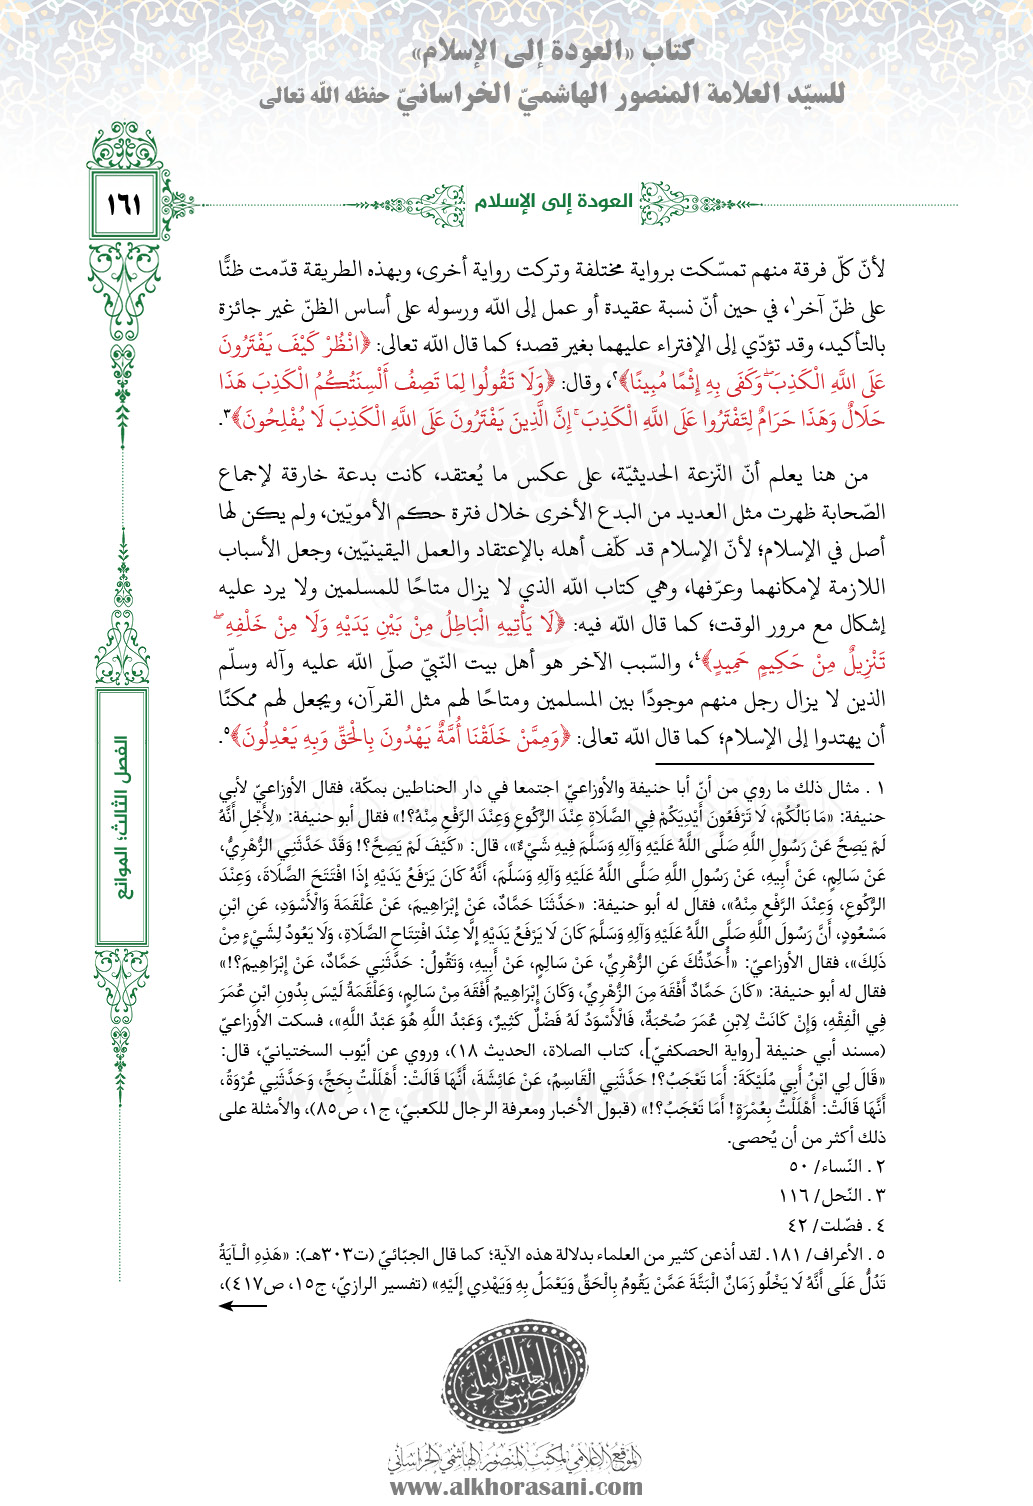 كتاب «العودة إلى الإسلام»
للسيّد العلامة المنصور الهاشميّ الخراسانيّ حفظه اللّه تعالى
١٦١
العودة إلى الإسلام
لأنّ كلّ فرقة منهم تمسّكت برواية مختلفة وتركت رواية أخرى، وبهذه الطريقة قدّمت ظنًّا
على ظنّ آخر١، في حين أنّ نسبة عقيدة أو عمل إلى اللّه ورسوله على أساس الظنّ غير جائزة
بالتأكيد، وقد تؤدّي إلى الإفتراء عليهما بغير قصد؛ كما قال اللّه تعالى: ﴿انْظُرْ كَيْفَ يَفْتَرُونَ
عَلَى اللَّهِ الْكَذِبَ ۖ وَكَفَى بِهِ إِثْمًا مُبِينًا﴾٢، وقال: ﴿وَلَا تَقُولُوا لِمَا تَصِفُ أَلْسِنَتُكُمُ الْكَذِبَ هَذَا
حَلَالٌ وَهَذَا حَرَامٌ لِتَفْتَرُوا عَلَى اللَّهِ الْكَذِبَ ۚ إِنَّ الَّذِينَ يَفْتَرُونَ عَلَى اللَّهِ الْكَذِبَ لَا يُفْلِحُونَ﴾٣.
من هنا يعلم أنّ النّزعة الحديثيّة، على عكس ما يُعتقد، كانت بدعة خارقة لإجماع
الصّحابة ظهرت مثل العديد من البدع الأخرى خلال فترة حكم الأمويّين، ولم يكن لها
أصل في الإسلام؛ لأنّ الإسلام قد كلّف أهله بالإعتقاد والعمل اليقينيّين، وجعل الأسباب
اللازمة لإمكانهما وعرّفها، وهي كتاب اللّه الذي لا يزال متاحًا للمسلمين ولا يرد عليه
إشكال مع مرور الوقت؛ كما قال اللّه فيه: ﴿لَا يَأْتِيهِ الْبَاطِلُ مِنْ بَيْنِ يَدَيْهِ وَلَا مِنْ خَلْفِهِ ۖ
تَنْزِيلٌ مِنْ حَكِيمٍ حَمِيدٍ﴾٤، والسّبب الآخر هو أهل بيت النّبيّ صلّى اللّه عليه وآله وسلّم
الذين لا يزال رجل منهم موجودًا بين المسلمين ومتاحًا لهم مثل القرآن، ويجعل لهم ممكنًا
أن يهتدوا إلى الإسلام؛ كما قال اللّه تعالى: ﴿وَمِمَّنْ خَلَقْنَا أُمَّةٌ يَهْدُونَ بِالْحَقِّ وَبِهِ يَعْدِلُونَ﴾٥.
الفصل الثالث؛ الموانع
١ . مثال ذلك ما روي من أنّ أبا حنيفة والأوزاعيّ اجتمعا في دار الحناطين بمكّة، فقال الأوزاعيّ لأبي
حنيفة: «مَا بَالُكُمْ، لَا تَرْفَعُونَ أَيْدِيَكُمْ فِي الصَّلَاةِ عِنْدَ الرُّكُوعِ وَعِنْدَ الرَّفْعِ مِنْهُ؟!» فقال أبو حنيفة: «لِأَجْلِ أَنَّهُ
لَمْ يَصِحَّ عَنْ رَسُولِ اللَّهِ صَلَّى اللَّهُ عَلَيْهِ وَآلِهِ وَسَلَّمَ فِيهِ شَيْءٌ»، قال: «كَيْفَ لَمْ يَصِحَّ؟! وَقَدْ حَدَّثَنِي الزُّهْرِيُّ،
عَنْ سَالِمٍ، عَنْ أَبِيهِ، عَنْ رَسُولِ اللَّهِ صَلَّى اللَّهُ عَلَيْهِ وَآلِهِ وَسَلَّمَ، أَنَّهُ كَانَ يَرْفَعُ يَدَيْهِ إِذَا افْتَتَحَ الصَّلَاةَ، وَعِنْدَ
الرُّكُوعِ، وَعِنْدَ الرَّفْعِ مِنْهُ»، فقال له أبو حنيفة: «حَدَّثَنَا حَمَّادٌ، عَنْ إِبْرَاهِيمَ، عَنْ عَلْقَمَةَ وَالْأَسْوَدِ، عَنِ ابْنِ
مَسْعُودٍ، أَنَّ رَسُولَ اللَّهِ صَلَّى اللَّهُ عَلَيْهِ وَآلِهِ وَسَلَّمَ كَانَ لَا يَرْفَعُ يَدَيْهِ إِلَّا عِنْدَ افْتِتَاحِ الصَّلَاةِ، وَلَا يَعُودُ لِشَيْءٍ مِنْ
ذَلِكَ»، فقال الأوزاعيّ: «أُحَدِّثُكَ عَنِ الزُّهْرِيِّ، عَنْ سَالِمٍ، عَنْ أَبِيهِ، وَتَقُولُ: حَدَّثَنِي حَمَّادٌ، عَنْ إِبْرَاهِيمَ؟!»
فقال له أبو حنيفة: «كَانَ حَمَّادٌ أَفْقَهَ مِنَ الزُّهْرِيِّ، وَكَانَ إِبْرَاهِيمُ أَفْقَهَ مِنْ سَالِمٍ، وَعَلْقَمَةُ لَيْسَ بِدُونِ ابْنِ عُمَرَ
فِي الْفِقْهِ، وَإِنْ كَانَتْ لِابْنِ عُمَرَ صُحْبَةٌ، فَالْأَسْوَدُ لَهُ فَضْلٌ كَثِيرٌ، وَعَبْدُ اللَّهِ هُوَ عَبْدُ اللَّهِ»، فسكت الأوزاعيّ
(مسند أبي حنيفة [رواية الحصكفيّ]، كتاب الصلاة، الحديث ١٨)، وروي عن أيّوب السختيانيّ، قال:
«قَالَ لِي ابْنُ أَبِي مُلَيْكَةَ: أَمَا تَعْجَبُ؟! حَدَّثَنِي الْقَاسِمُ، عَنْ عَائِشَةَ، أَنَّهَا قَالَتْ: أَهْلَلْتُ بِحَجٍّ، وَحَدَّثَنِي عُرْوَةُ،
أَنَّهَا قَالَتْ: أَهْلَلْتُ بِعُمْرَةٍ! أَمَا تَعْجَبُ؟!» (قبول الأخبار ومعرفة الرجال للكعبيّ، ج١، ص٨٥)، والأمثلة على
ذلك أكثر من أن يُحصى.
٢ . النّساء/ ٥٠
٣ . النّحل/ ١١٦
٤ . فصّلت/ ٤٢
٥ . الأعراف/ ١٨١. لقد أذعن كثير من العلماء بدلالة هذه الآية؛ كما قال الجبّائيّ (ت٣٠٣هـ): «هَذِهِ الْآيَةُ
تَدُلُّ عَلَى أَنَّهُ لَا يَخْلُو زَمَانٌ الْبَتَّةَ عَمَّنْ يَقُومُ بِالْحَقِّ وَيَعْمَلُ بِهِ وَيَهْدِي إِلَيْهِ» (تفسير الرازيّ، ج١٥، ص٤١٧)،
المنصور الهاشمي الخراساني
الموقع الإعلامي لمكتب المنصور الهاشمي الخراساني
www.alkhorasani.com